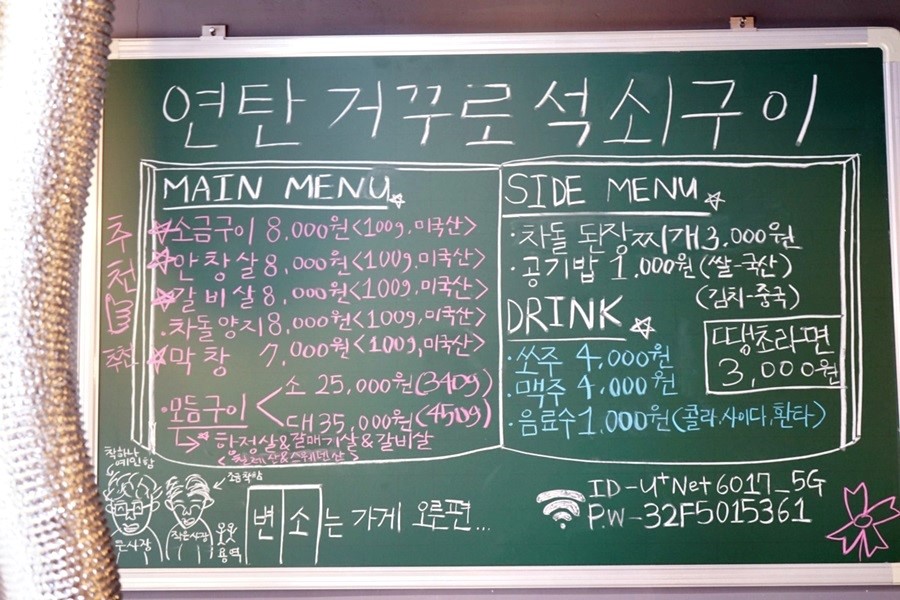 연탄 거꾸로 석쇠구이
MAIN MENU
추천
☆소금구이 8,000원<100g,미국산>
☆안창살 8,000원<100g,미국산>
☆갈비살 8,000원<100g,미국산>
·차돌양지 8,000원<100g,미국산>
추천 ☆막창 7,000원<100g,미국산>
·모듬구이 < 소 25,000원(340g)
대 35,000원(450g)
항정살&쫄매기살&갈비살
SIDE MENU
·차돌 된장찌개 3,000원
·공기밥 1,000원(쌀-국산)
(김치-중국)
DRINK
땡초라면
3,000원
·쏘주 4,000원
·맥주 4,000원
·음료수 1,000원(콜라.사이다.환타)
큰사장
작은사장
용역
변소는 가게 오른편...
ID-U+Net6017_5G
PW-32F5015361